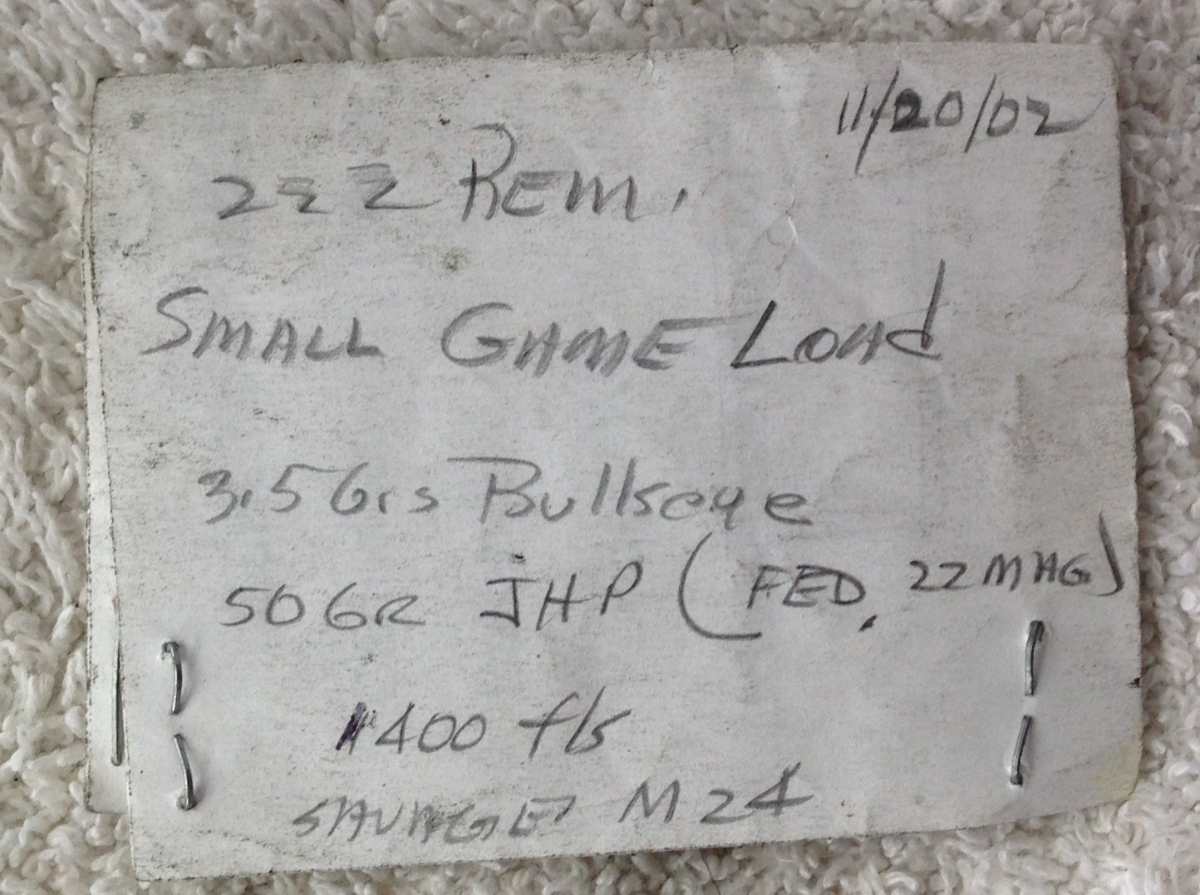 11/20/02
222 REM.
SMALL GAME LOAD
3.5 Grs Bullseye
50 GR JHP (FED. 22 MAG)
1400 f/s
SAVAGE M24